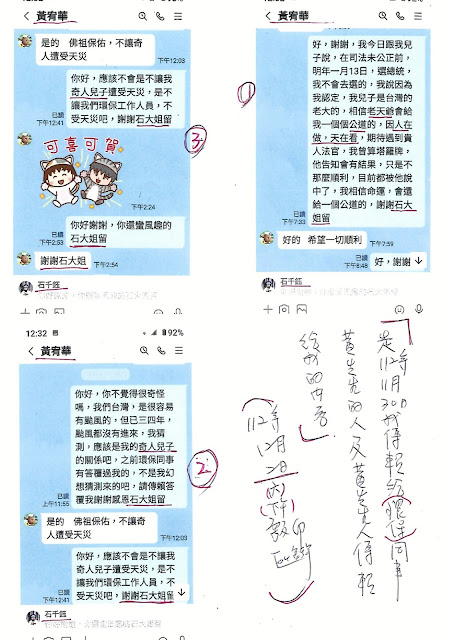 黃宥華
是的 佛祖保佑，不讓奇
人遭受天災
下午12:03
你好，應該不會是不讓我
奇人兒子遭受天災，是不
讓我們環保工作人員，不
受天災吧，謝謝石大姐留
已讀
下午12:41
3
可喜可賀
下午2:24
你好謝謝，你還蠻風趣的
石大姐留
已讀
下午2:53
謝謝石大姐
下午2:54
石千鈺
1
黃宥華
好，謝謝，我今日跟我兒
子說，在司法未公正前，
明年一月13日，選總統，
我不會去選的，我說因為
我認定，我兒子是台灣的
老大的，相信老天爺會給
我一個個公道的，因人在
做，天在看，期待遇到貴
人法官，我曾算塔羅牌，
他告知會有結果，只是不
那麼順利，目前都被他說
中了，我相信命運，會還
給一個公道的，謝謝石大
姐留
已讀
下午7:33
好的 希望一切順利
下午7:59
好，謝謝
已讀
下午8:48
石千鈺
12:32
92%
黃宥華
你好，你不覺得很奇怪
嗎，我們台灣，是很容易
有颱風的，但已三四年，
颱風都沒有進來，我猜
測，應該是我的奇人兒子
的關係吧，之前環保同事
有答覆過我的，不是我幻
想猜測來的吧，請傳賴答
覆我謝謝感恩石大姐留
已讀
上午11:55
2
是的 佛祖保佑，不讓奇
人遭受天災
下午12:03
你好，應該不會是不讓我
奇人兒子遭受天災，是不
讓我們環保工作人員，不
受天災吧，謝謝石大姐留
已讀
下午12:41
石千鈺
是112年11月30日我傳賴給環保同事
黃先生的人及黃先生人傳賴
給我的內容
112年
12月2日